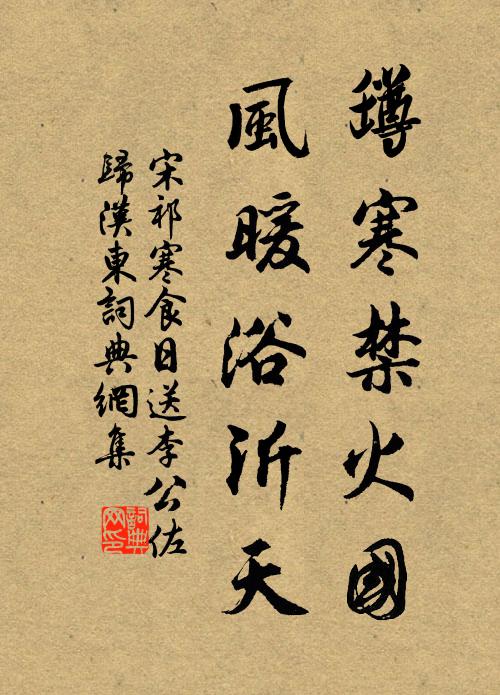 罇寒禁火國
風暖浴沂天
宋祁寒食日送李公佐
歸漢東詞典網集
詞典網印